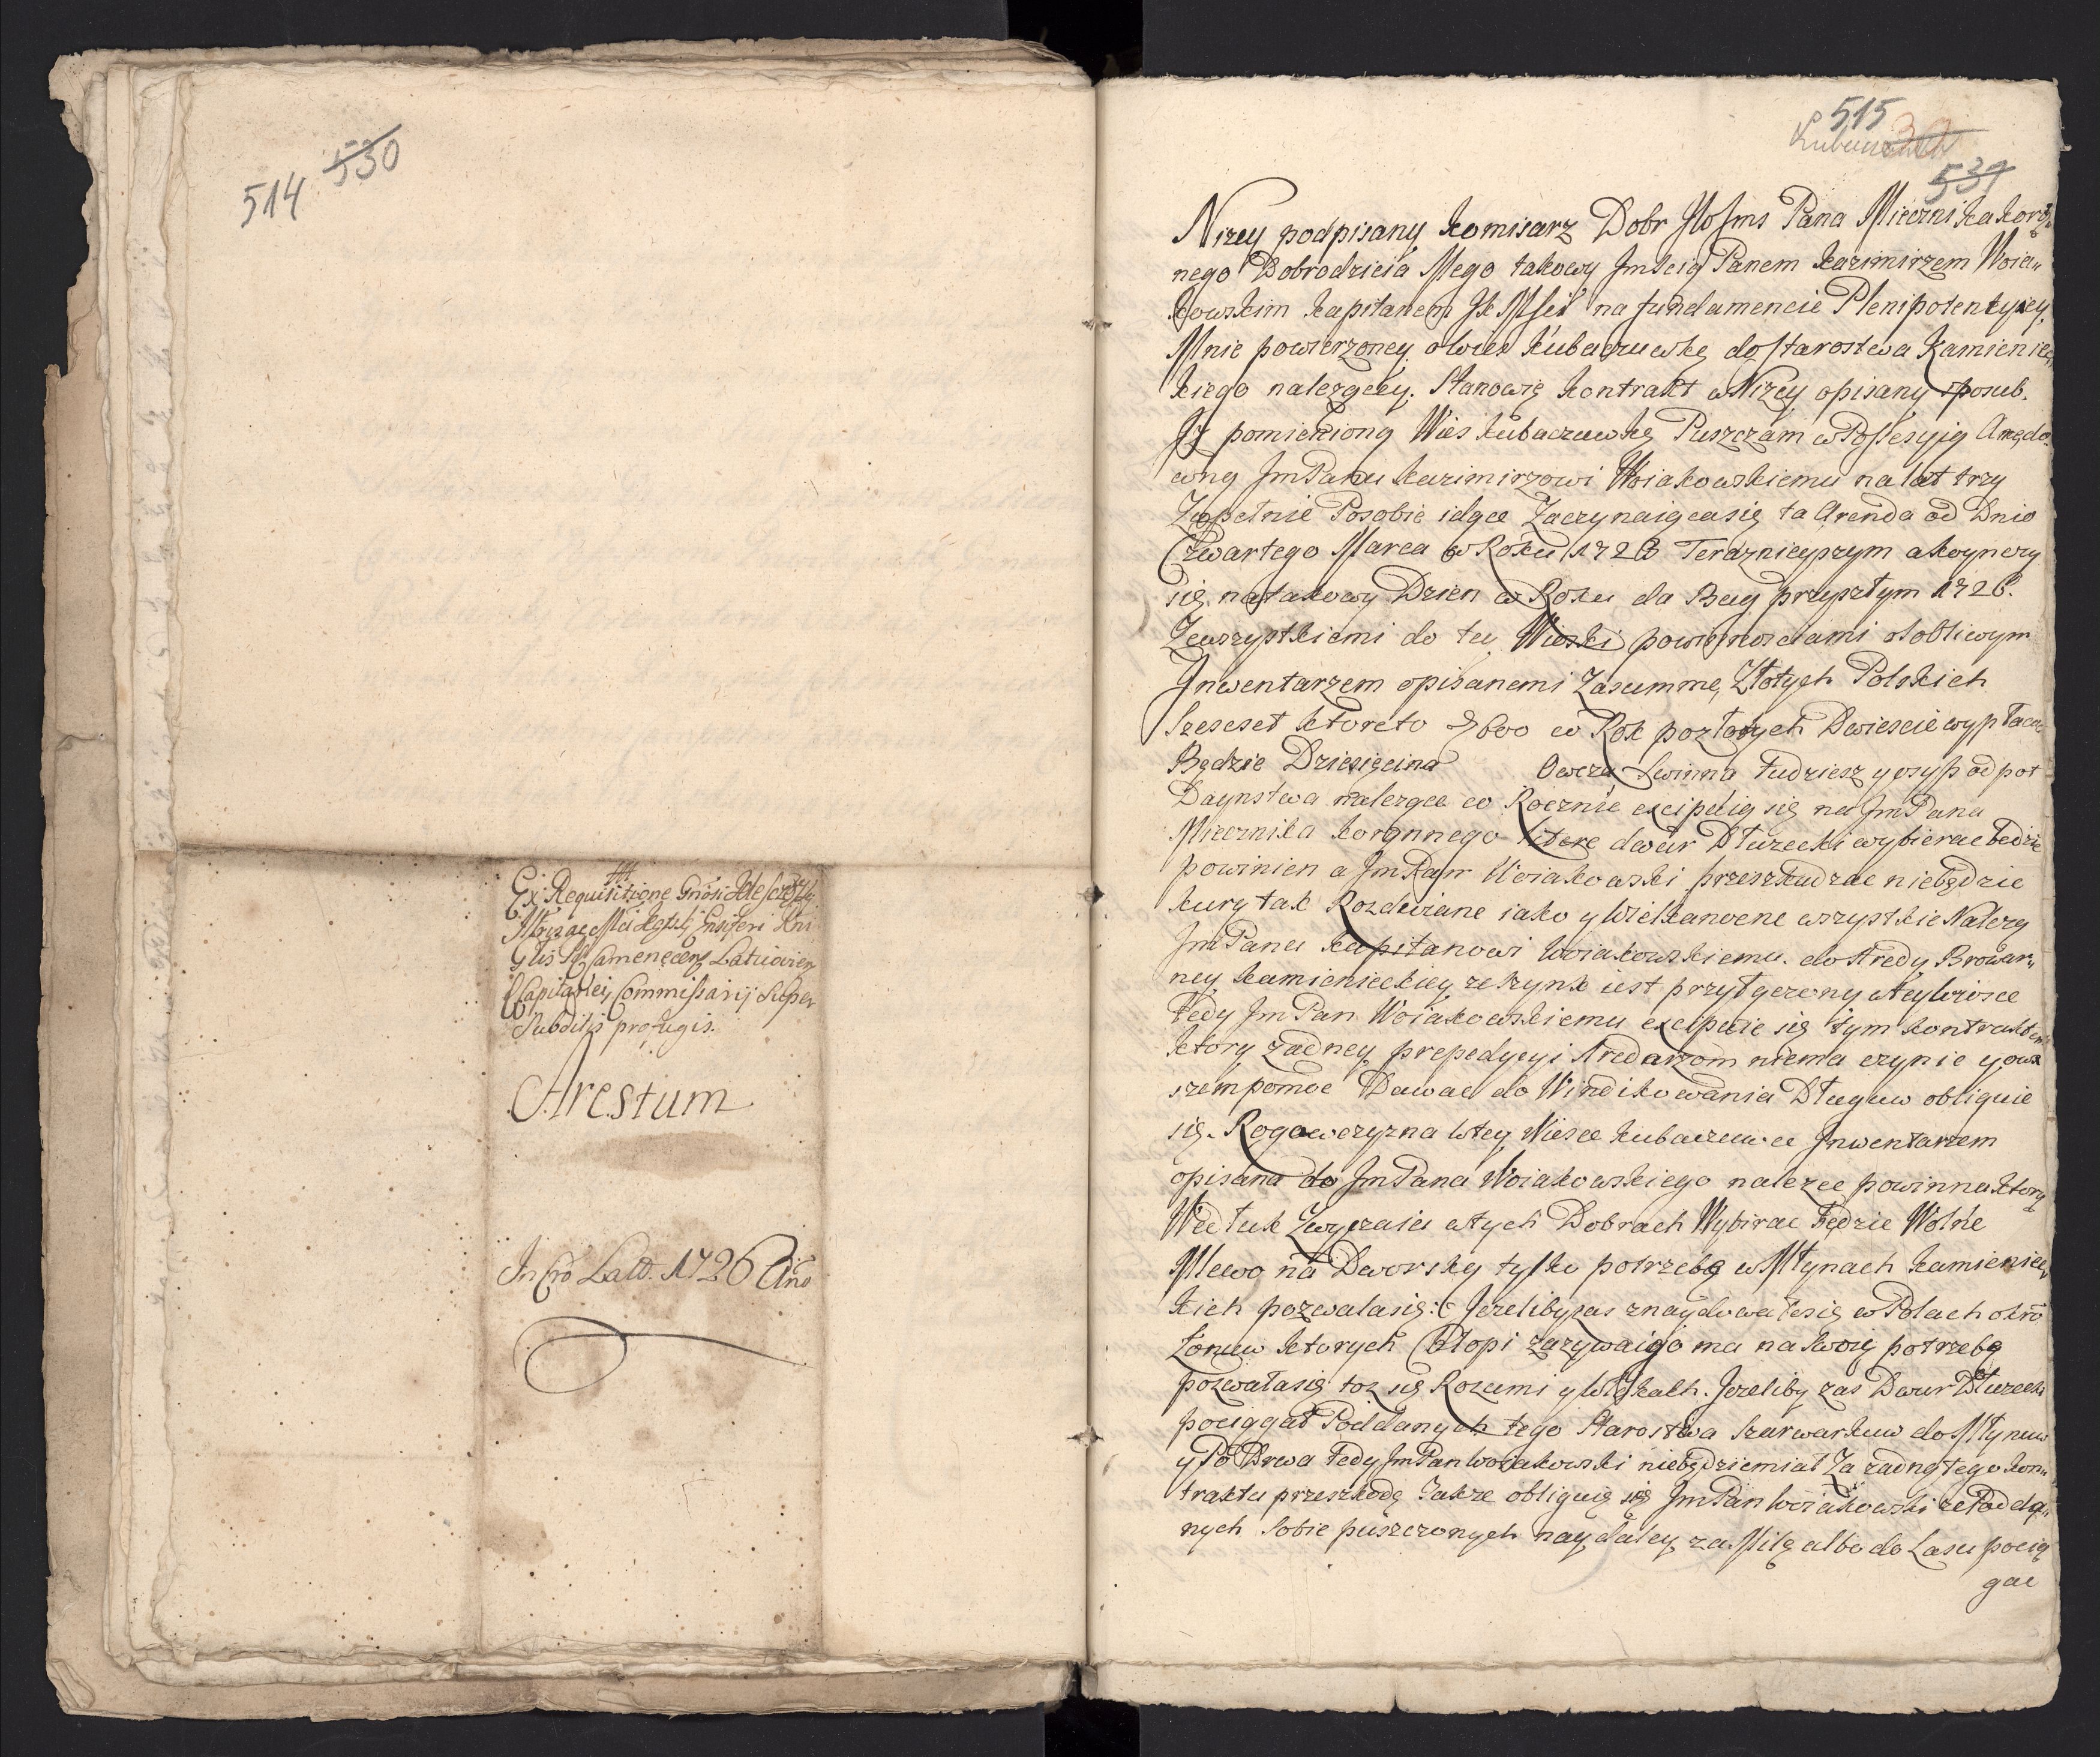 514 530
Ex Requisitione
Commissarij Super
Subditis profugis.
Arestum
In Cro Latt. 1726 Ano
515
539
Nizey podpisany Komisarz Dobr JWoJms Pana Miecznika Koron
nego Dobrodzieia Mego takowy Jmscią Panem Kazimirzem Woia„
kowskim Kapitanem JKMsci na fundamencie Plenipotencyiey
Mnie powierzoney o wies Kubaczuwkę do starostwa Kamieniec„
kiego nalezącey. Stanowię Kontrakt w Nizey opisany sposub.
Jz pomienioną Wies Kubaczuwkę Puszczam w Possesyią Arędo„
wną Jm Panu Kazimirzowi Woiakowskiemu na lat trzy
Zupełnie Posobie idące Zaczynaiącasię ta Arenda od Dnia
Czwartego Marca w Roku 1723 Teraznieyszym a konczy
się na takowy Dzien w Roku da Bug przyszłym 1726.
Zewszystkiemi do tey Wioski powinnosciami osobliwym
Jnwentarzem opisanemi Zasumme Złotych Polskich
Szescset ktoreto 600 w Rok po złotych Dwiescie wypłacac
Będzie Dziesięcina Owcza Swinna tudziesz y osyp od pot
Daynstwa nalezące co Rocznie excipuią się na Jm Pana
Miecznika koronnego ktore dwur Dłuzecki wybierac będzie
powinien a Jm Pan Woiakowski przeszkadzac niebędzie
kury tak Rozdwiane iako y Wielkanocne wszystkie Nalezą
Jm Panu Kapitanowi Woiakowskiemu. do Aredy Browar„
ney Kamienieckiey ze szynk iest przyłączony w tey wiosce
Tedy Jm Pan Woiakowskiemu excipuie się tym kontraktem
ktory zadney prepedycyi Aredarzom niema czynic y ow
szem pomoc Dawac do Windikowania Długuw obliguie
się. Rogowczyzna w tey Wiesce Kubaczuwce Jnwentarzem
opisana do Jm Pana Woiakowskiego nalezec powinna ktorą
Wedłuk Zwyczaiu w tych Dobrach Wybirac będzie Wolne
Mlewo na Dworską tylko potrzebę w Młynach Kamieniec„
kich pozwalasię: Jezeliby zas znaydowałosię w Polach okro
ktorych Chłopi zazywaią ma na swoię potrzebę
pozwalasię toz się Rozumi y łąkach. Jezeliby zas Dwur Dłuzecki
pociągał Poddanych tego Starostwa Szarwarkuw do Młynuw
y Po Drwa tedy Jm Pan Woiakowski niebędziemiał Za zadną tego kon„
traktu przeszkodę Takze obliguię się Jm Pan Woiakowski ze Podda„
nych Sobie puszczonych naydaley za Milę albo do Lasu pocią
gac